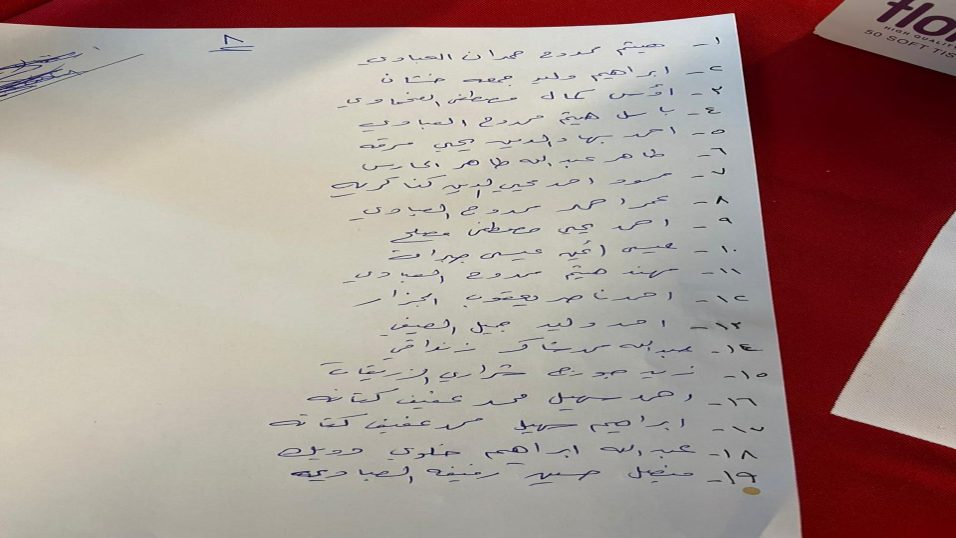 ٨
١- هيثم ممدوح حمدان العبادي
٢- ابراهيم وليد جمعه خشان
٣- أوس كمال مصطفى
٤- باسل هيثم ممدوح العبادي
٥- احمد بهاء الدين يحيى مرقه
٦- طاهر عبدالله طاهر الحارس
٧- محمود احمد محيي الدين كناكريه
٨- عمر احمد ممدوح العبادي
٩- احمد يحيى مصطفى مصلح
١٠- عيسى أمين عيسى
١١- مهند هيثم ممدوح العبادي
١٢- احمد ناصر يعقوب الجزار
١٣- احمد وليد جميل الصيفي
١٤- عبدالله محمد شاكر زنداقي
١٥- زيد جورج شراري الزريقات
١٦- احمد سهيل محمد عفيف كتانه
١٧- ابراهيم سهيل محمد عفيف كتانه
١٨- عبدالله ابراهيم خلوي دويك
١٩- فيصل حسين رفيفه العبادي
flor
HIGH QUALITY
50 SOFT TIS